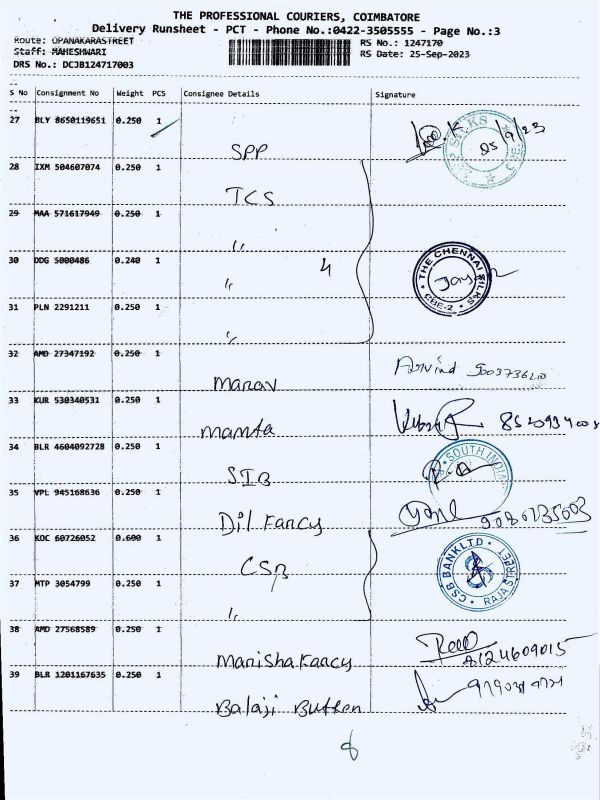 THE PROFESSIONAL COURIERS, COIMBATORE
Delivery Runsheet - PCT - Phone No.:0422-3505555 - Page No.:3
Route: OPANAKARASTREET
RS No.: 1247170
Staff: MAHESHWARI
RS Date: 25-Sep-2023
DRS No.: DCJB124717003
S No Consignment No Weight PCS Consignee Details Signature
27 BLY 8650119651 0.250 1
SPP
25/9/23
28 IXM 504607074 0.250 1
TCS
29 MAA 571617949 0.250 1
〃
30 DDG 5000486 0.240 1
〃 4
THE CHENNAI SILKS
CBE-2
31 PLN 2291211 0.250 1
〃
32 AMD 27347192 0.250 1
Manav
Arvind
33 KUR 530340531 0.250 1
Mamta
34 BLR 4604092728 0.250 1
SIB
SOUTH INDIAN
35 VPL 945168636 0.250 1
Dil Fancy
36 KOC 60726052 0.600 1
CSB
CSB BANK LTD.
RAJA STREET
37 MTP 3054799 0.250 1
〃
38 AMD 27568589 0.250 1
Manisha Fancy
8124609015
39 BLR 1201167635 0.250 1
Balaji Button